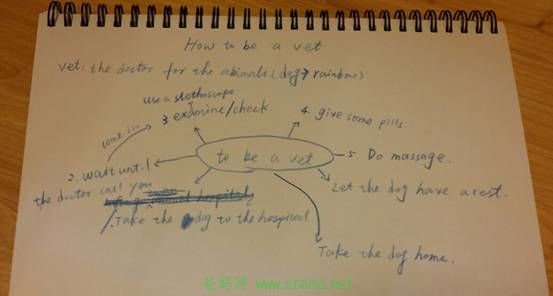 How to be a vet
vet: the doctor for the animals (dog → rainbow)
use a stethoscope
3 examine/check
4. give some pills
come in
to be a vet
5 Do massage.
2. wait until
the doctor call you
Let the dog have a rest.
1. Take the dog to the hospital
Take the dog home.
爸妈网 www.ebama.net